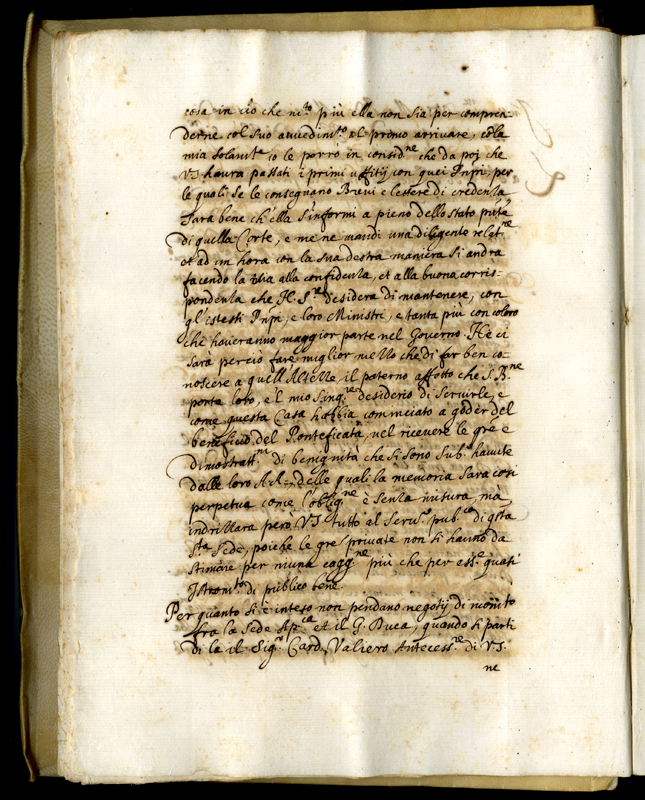 cosa in ciò che ni.to più ella non sia per compren-
derne col suo auuedim.to al primo arriuare,
mia solam.te io le porrò in consid.ne che da poi che
VS haura passati i primi uffitij con quei Pnpi, per
le quali se le consegnano Breui e lettere di credenza
sara bene ch'ella s'informi a pieno dello stato pnte
di quella Corte, e me ne mandi una diligente relat.ne
et ad un hora con la sua destra maniera si andra
facendo la uia alla confidenza, et alla buona corris-
pondenza che N. S.re desidera di mantenere, con
gl'istessi Pnpi, e loro Ministri, e tanto più con coloro
che haueranno maggior parte nel Gouerno. Ne ci
sarà perciò fare miglior mezzo che di far ben co-
noscere a quell'Altezze, il paterno affetto che S. B.ne
porta loro, e'l mio sing.re desiderio di seruirle, e
come questa Casa habbia cominciato a goder del
beneficio del Ponteficato, nel riceuere le gre e
dimostratt.ni di benignità che si sono sub.o hauute
dalle loro delle quali la memoria sara così
perpetua come l'oblig.ne è senza misura, mà
indrizzara però VS tutto al Seru.o pub.co di qsta
S.ta Sede, poiche le gre priuate non si hanno da
stimare per niuna cagg.ne più che per ess.e quasi
Istrom.to di publico bene.
Per quanto si è inteso non pendano negotij di mom.to
fra la Sede Ap.ca et il G. Duca, quando si parti
di la il Sig.r Card. Valiero Antecess.re di VS.
ne